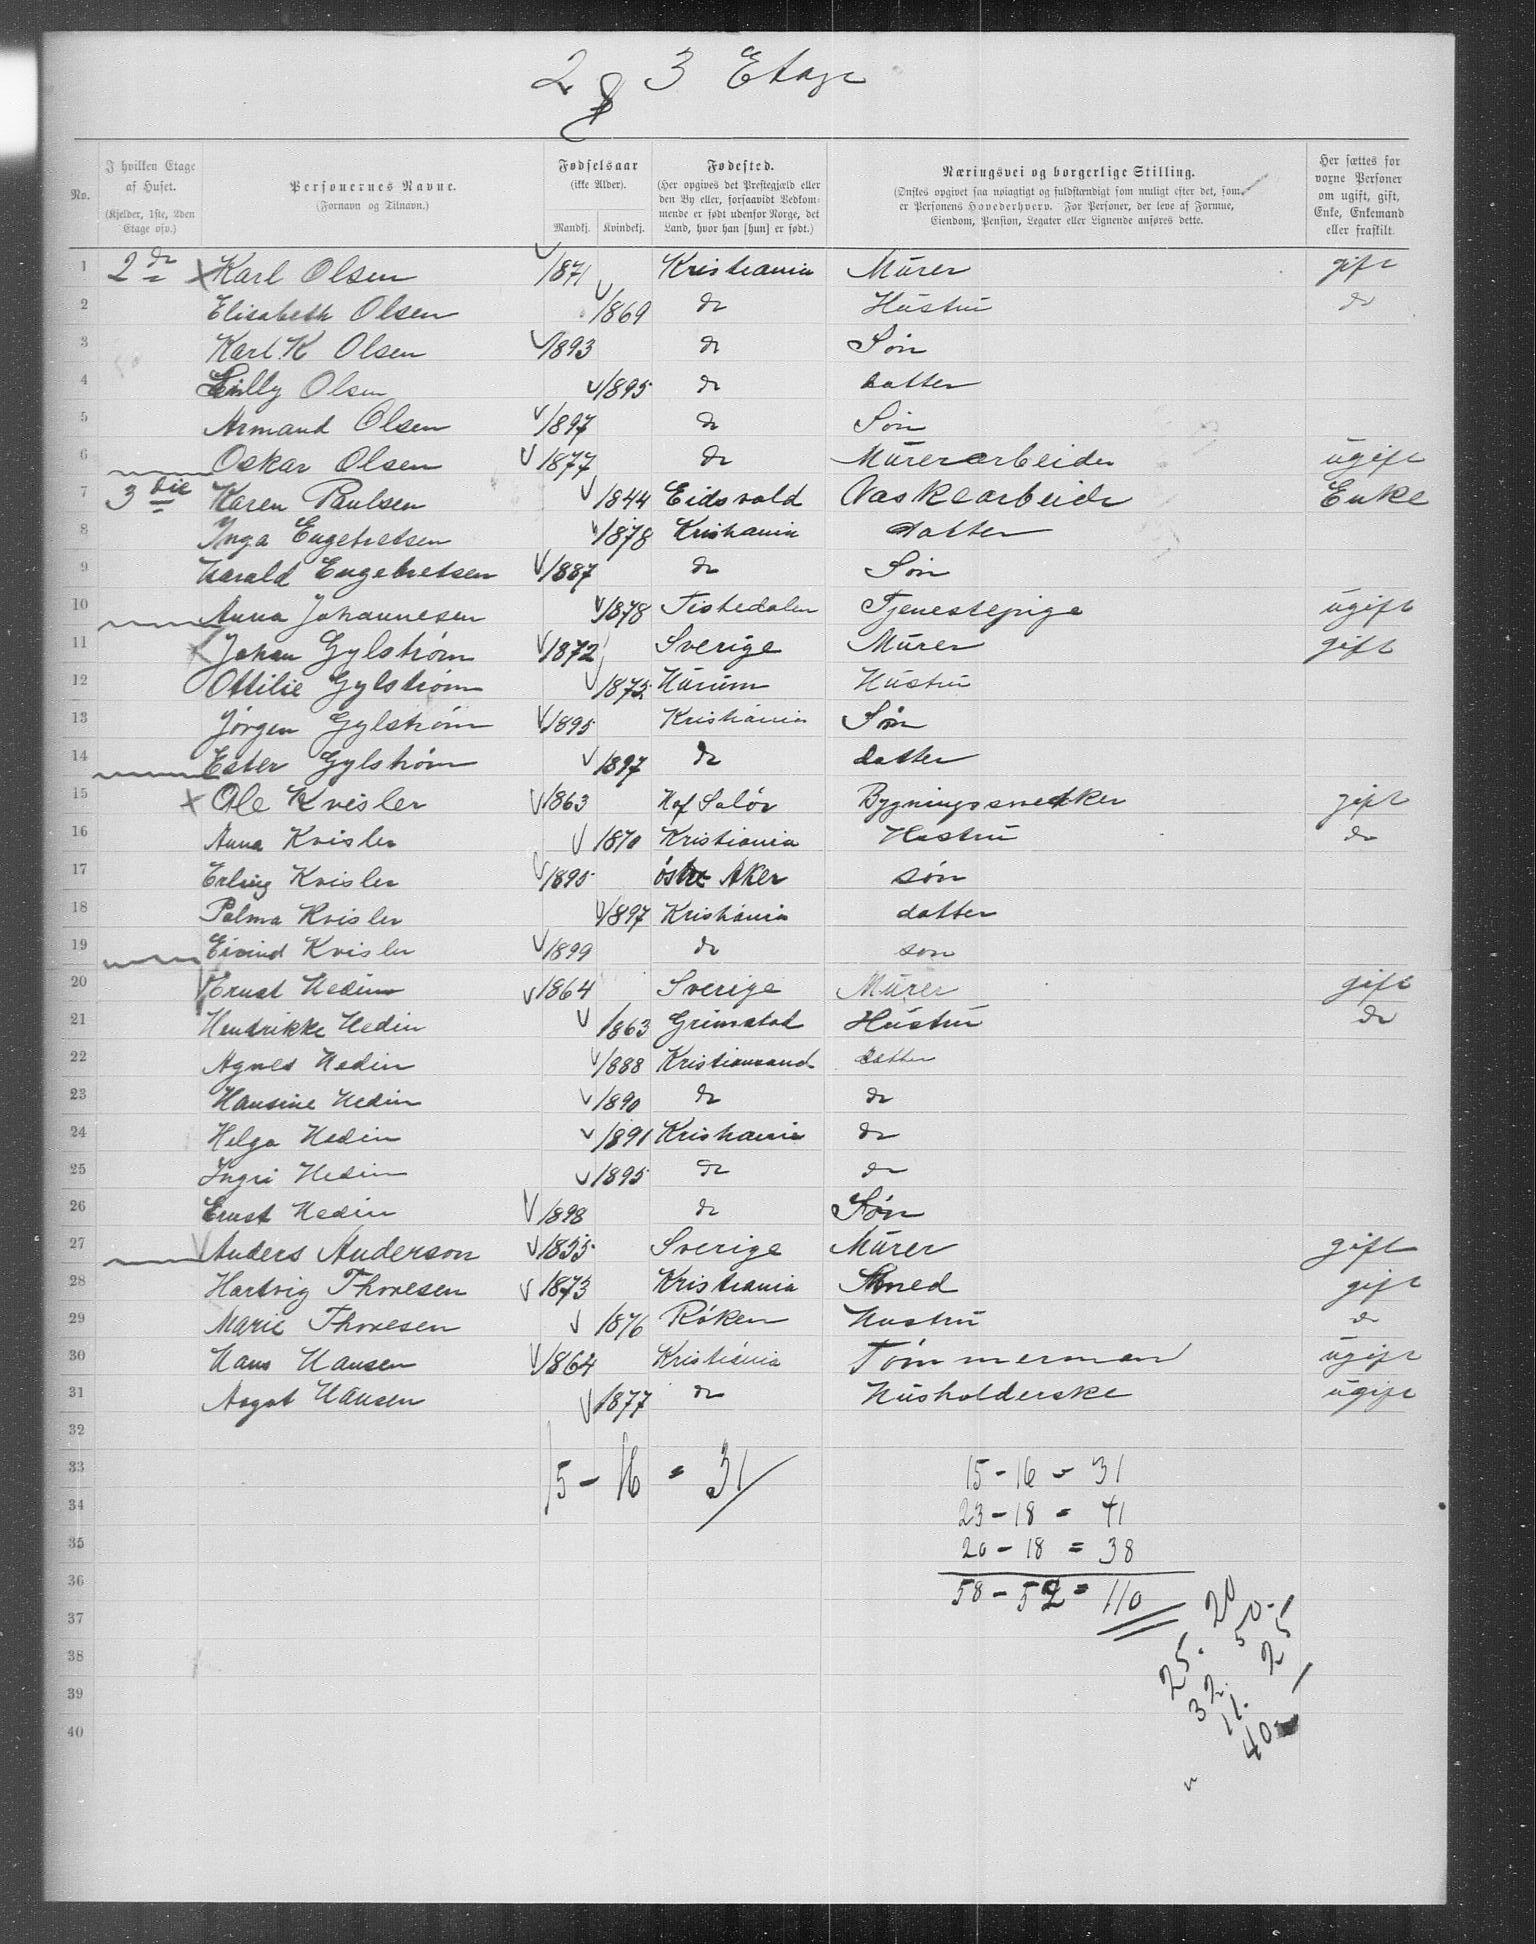 2 & 3 Etage
No.
I hvilken Etage af Huset. (Kjelder, 1ste, 2den Etage osv.)
Personernes Navne. (Fornavn og Tilnavn.)
Fødselsaar (ikke Alder). Mandkj. Kvindekj.
Fødested. (Her opgives det Prestegjæld eller den By eller, forsaavidt Vedkommende er født udenfor Norge, det Land, hvor han [hun] er født.)
Næringsvei og borgerlige Stilling. (Ønskes opgivet saa nøiagtigt og fuldstændigt som muligt efter det, som er Personens Hovederhverv. For Personer, der leve af Formue, Eiendom, Pension, Legater eller Lignende anføres dette.
Her sættes for voxne Personer om ugift, gift, Enke, Enkemand eller fraskilt.
1 2 de Karl Olsen 1871 Kristiania Mürer gift
2 Elisabeth Olsen 1869 do Hüstrü do
3 Karl K Olsen 1893 do Søn
4 Lilly Olsen 1895 do datter
5 Armand Olsen 1897 do Søn
6 Oskar Olsen 1877 do Mürerarbeider ugift
7 3 die Karen Paulsen 1844 Eidsvold Vaskearbeide Enke
8 Inga Engebretsen 1878 Kristiania datter
9 Harald Engebretsen 1887 do Søn
10 Anna Johannesen 1878 Tistedalen Tjenestepige ugift
11 Johan Gylstrøm 1872 Sverige Mürer gift
12 Ottilie Gylstrøm 1875 Hürüm Hüstrü
13 Jørgen Gylstrøm 1895 Kristiania Søn
14 Ester Gylstrøm 1897 do datter
15 Ole Kvisler 1863 Hof Solør Bygningssnedker gift
16 Anna Kvisler 1870 Kristiania Hustrü do
17 Erling Kvisler 1895 østre Aker søn
18 Palma Kvisler 1897 Kristiania datter
19 Eivind Kvisler 1899 do son
20 Ernst Hedin 1864 Sverige Mürer gift
21 Hendrikke Hedin 1863 Grimstad Hüstrü do
22 Agnes Hedin 1888 Kristiansand datter
23 Hansine Hedin 1890 do do
24 Helga Hedin 1891 Kristiania do
25 Ingri Hedin 1895 do do
26 Ernst Hedin 1898 do Søn
27 Anders Anderson 1855 Sverige Mürer gift
28 Hartvig Thoresen 1873 Kristiania Smed gift
29 Marie Thoresen 1876 Røken Hustrü do
30 Hans Hansen 1864 Kristiania Tømmerman ugift
31 Aagot Hansen 1877 do Husholderske ugift
32
33 15 - 16 = 31 15 - 16 = 31
34 23 - 18 = 41
35 20 - 18 = 38
36 58 - 52 = 110
37
38
39
40
25. 20
32. 50.
11. 25
40